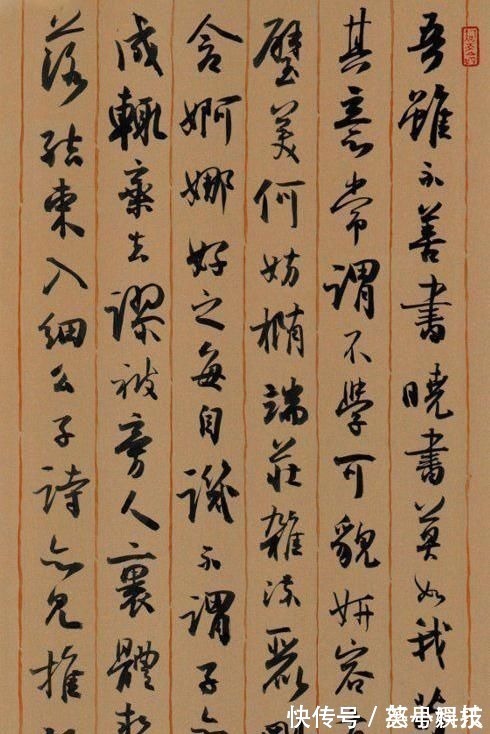 吾雖不善書曉書莫如我
其意常謂不學可貌妍容
璧美何妨橢端莊雜流麗
含婀娜好之每自譏不謂子
成輒棄去謬被旁人裹體
落結束入細么子詩亦見推
快传号/